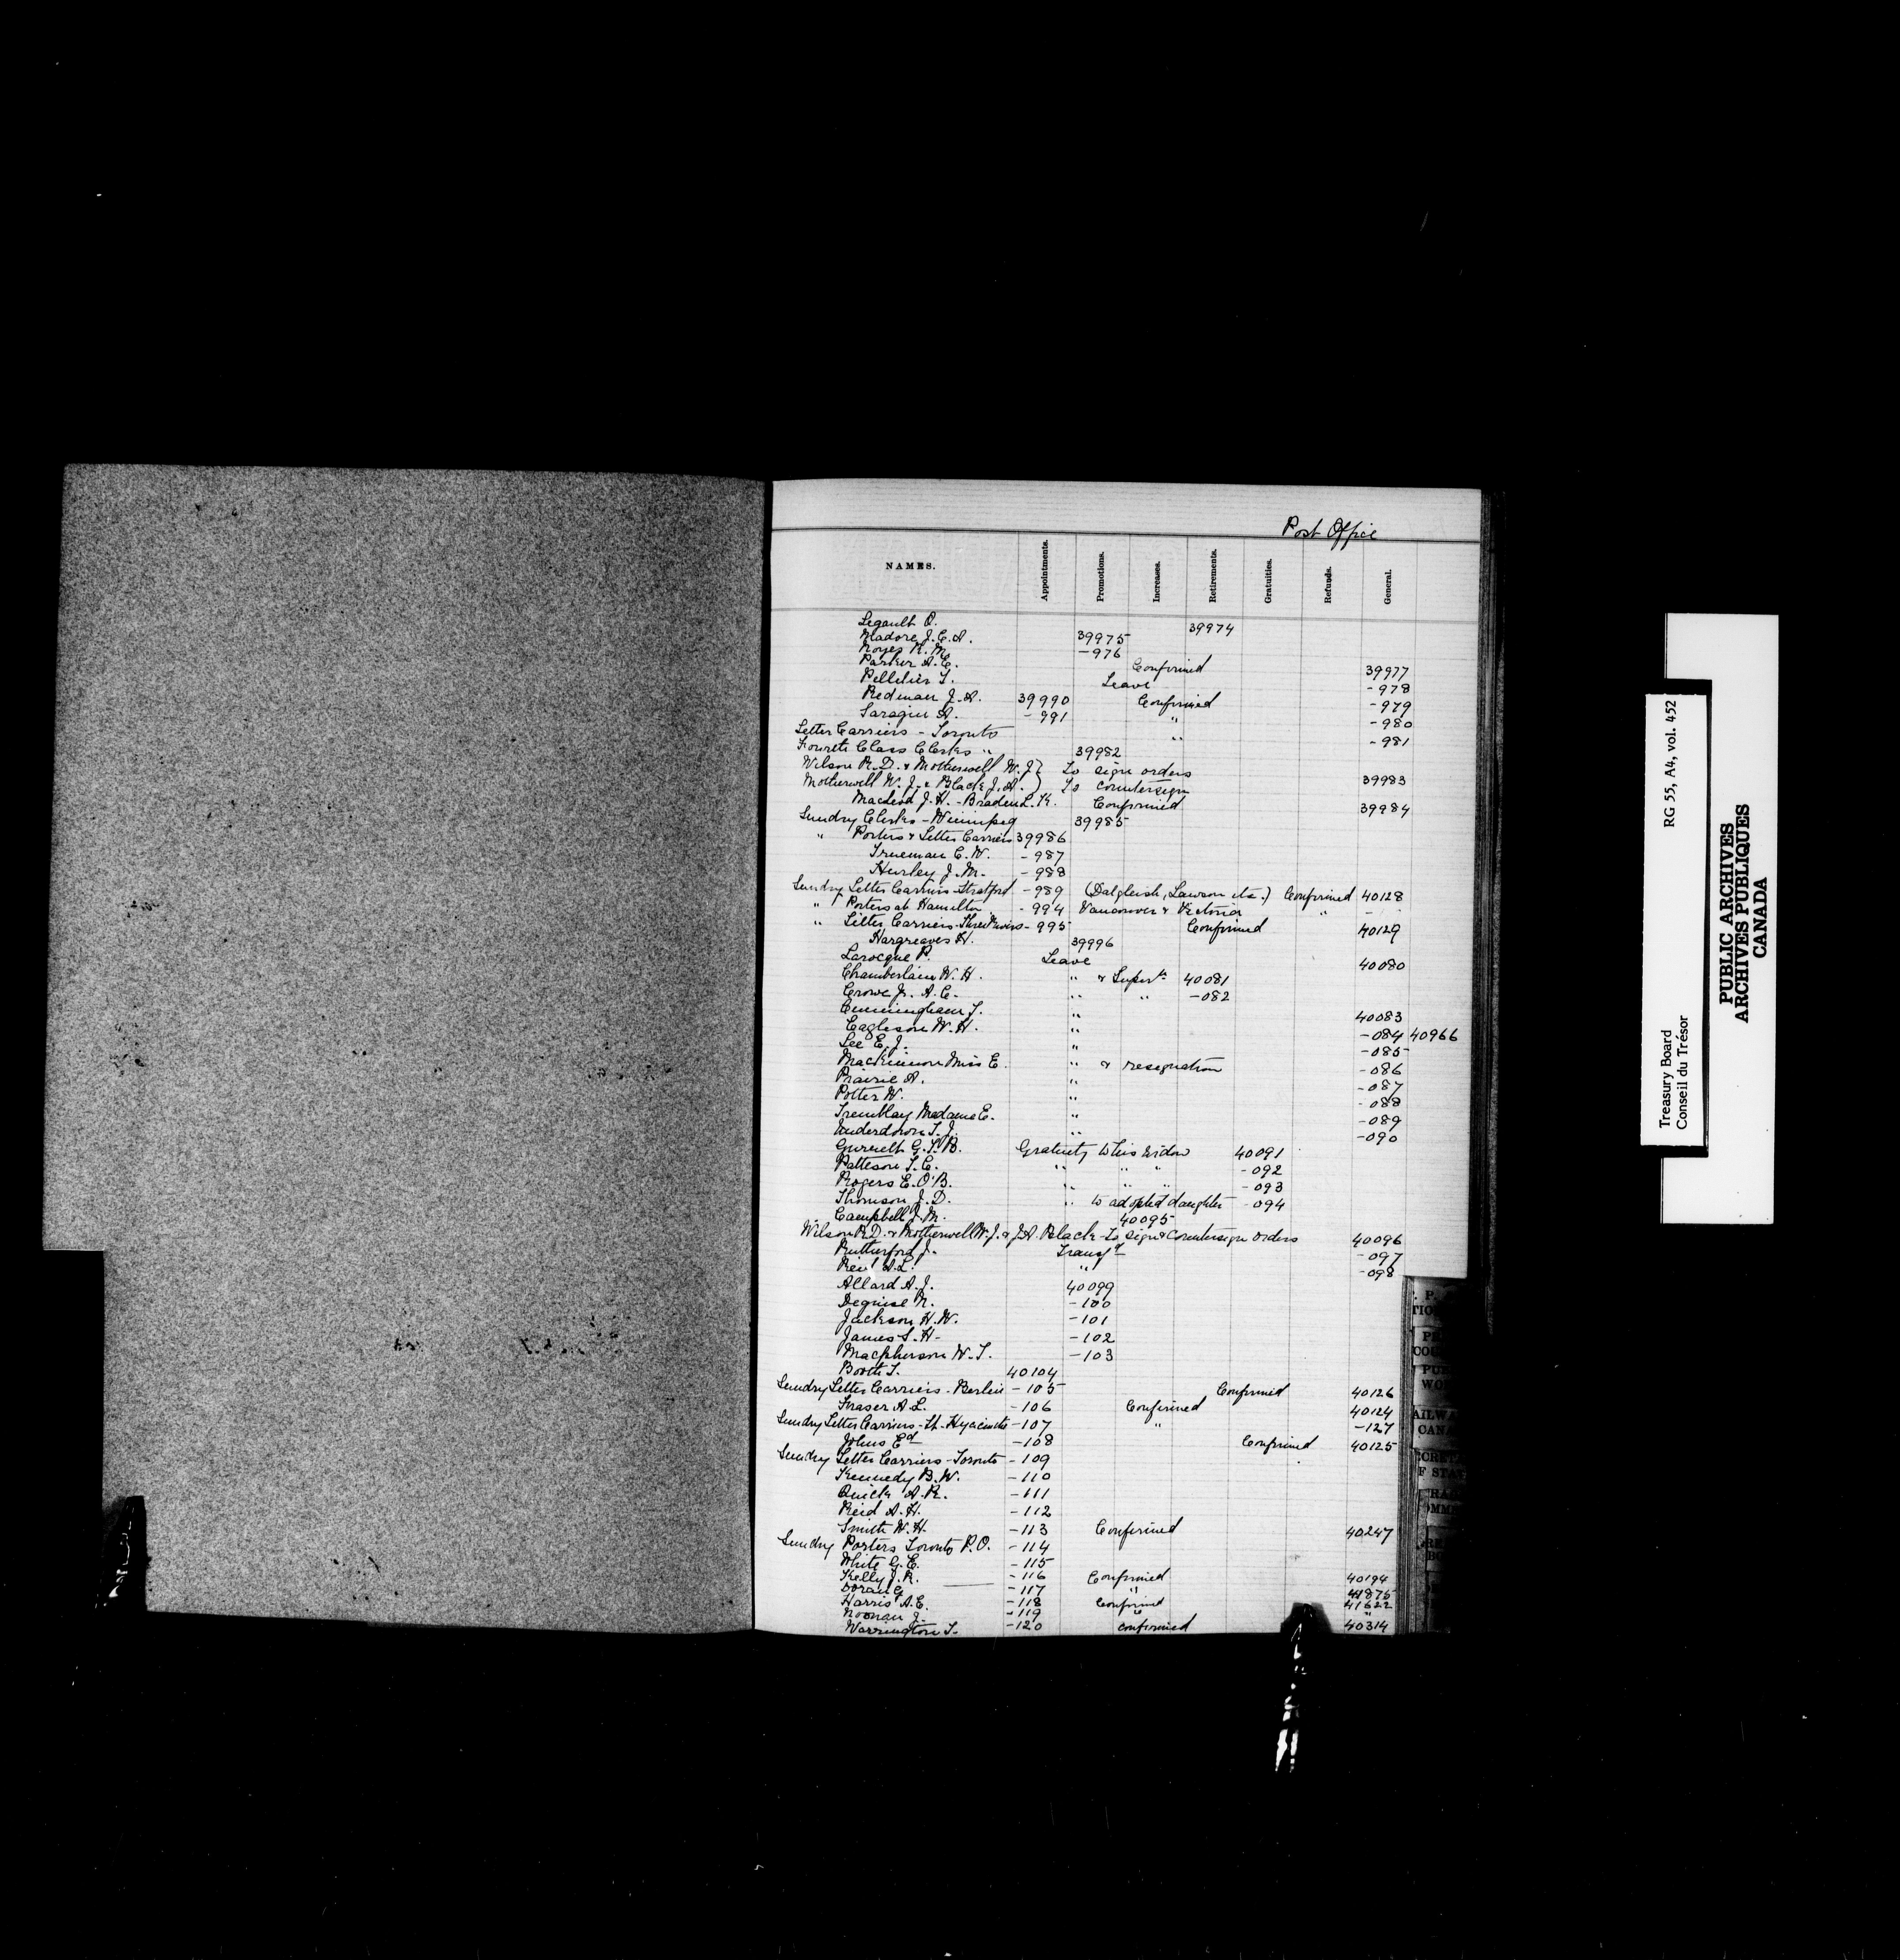 Post Office
NAMES. Appointments. Promotions. Increases. Retirements. Gratuities. Refunds. General.
Legault O. 39974
Madore J.E.A. 39975
Noyes R.M. -976
Parker A.E. Confirmed 39977
Pelletier T. Leave -978
Redman J.A. 39990 Confirmed -979
Saragin A. -991 " -980
Letter Carriers - Toronto " -981
Fourth Class Clerks " 39982
Wilson R.D. & Motherwell W.J. } To sign orders
Motherwell W.J. & Black J.A. } To countersign 39983
Macleod J.H. - Braden L.K. Confirmed 39984
Sundry Clerks - Winnipeg 39985
" Porters & Letter Carriers 39986
Trueman C.W. -987
Hurley J.M. -988
Sundry Letter Carriers Stratford -989 (Dalgleish, Lawson etc.) Confirmed 40128
" Porters at Hamilton -994 Vancouver & Victoria " -
" Letter Carriers - Three Rivers -995 Confirmed 40129
Hargreaves H. 39996
Larocque P. Leave 40080
Chamberlain W.H. " & Supern 40081
Crowe Jr. A.C. " " -082
Cunningham T. " 40083
Eagleson W.H. " -084 40966
Lee E.J. " -085
MacKinnon Miss E. " & resignation -086
Prairie A. " -087
Potter W. " -088
Tremblay Madame E. " -089
Underdown T.J. " -090
Gurnett G.T.B. Gratuity to his widow 40091
Patteson T.C. " " " -092
Rogers E.O'B. " " " -093
Thomson J.D. " to adopted daughter -094
Campbell J.M. 40095
Wilson R.D. & Motherwell W.J. & J.A. Black - To sign & Countersign orders 40096
Rutherford J. Transf -097
A.L. " -098
Allard A.J. 40099
Deguise N. -100
Jackson H.W. -101
James S.H. -102
Macpherson W.T. -103
Booth T. 40104
Sundry Letter Carriers - Berlin -105 Confirmed 40126
Fraser A.L. -106 Confirmed 40124
Sundry Letter Carriers - St. Hyacinthe -107 " -127
Johns Ed -108 Confirmed 40125
Sundry Letter Carriers - Toronto -109
Kennedy B.W. -110
Quick A.R. -111
Reid A.H. -112
Smith W.H. -113 Confirmed 40247
Sundry Porters Toronto P.O. -114
White G.E. -115
Kelly J.R. -116 Confirmed 40194
Doran G. -117 " 41875
Harris A.E. -118 Confirmed 41622
Noonan J. -119 " "
Warrington T. -120 confirmed 40314
Treasury Board RG 55, A4, vol. 452
Conseil du Trésor
PUBLIC ARCHIVES
ARCHIVES PUBLIQUES
CANADA